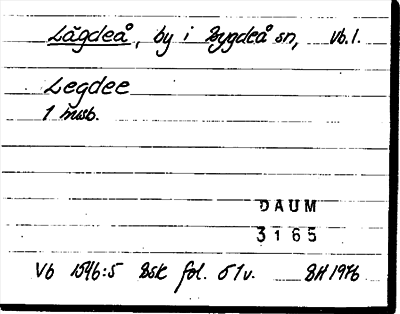 Lägdeå, by i Bygdeå sn, Vb.l.
Legdee
1 husb.
DAUM
3165
Vb 1546:5 Bsk fol. 51v. BH 1976